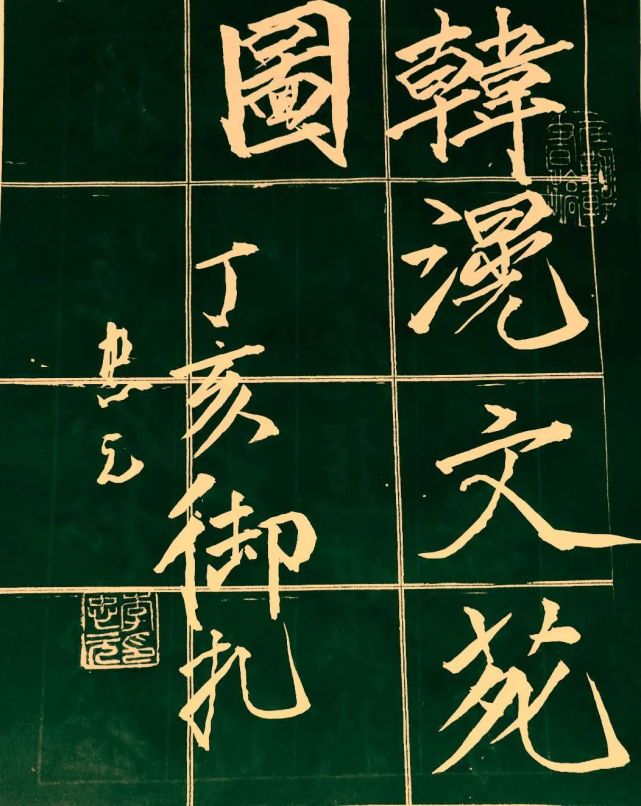 韓滉文苑
圖
丁亥御札
忠元